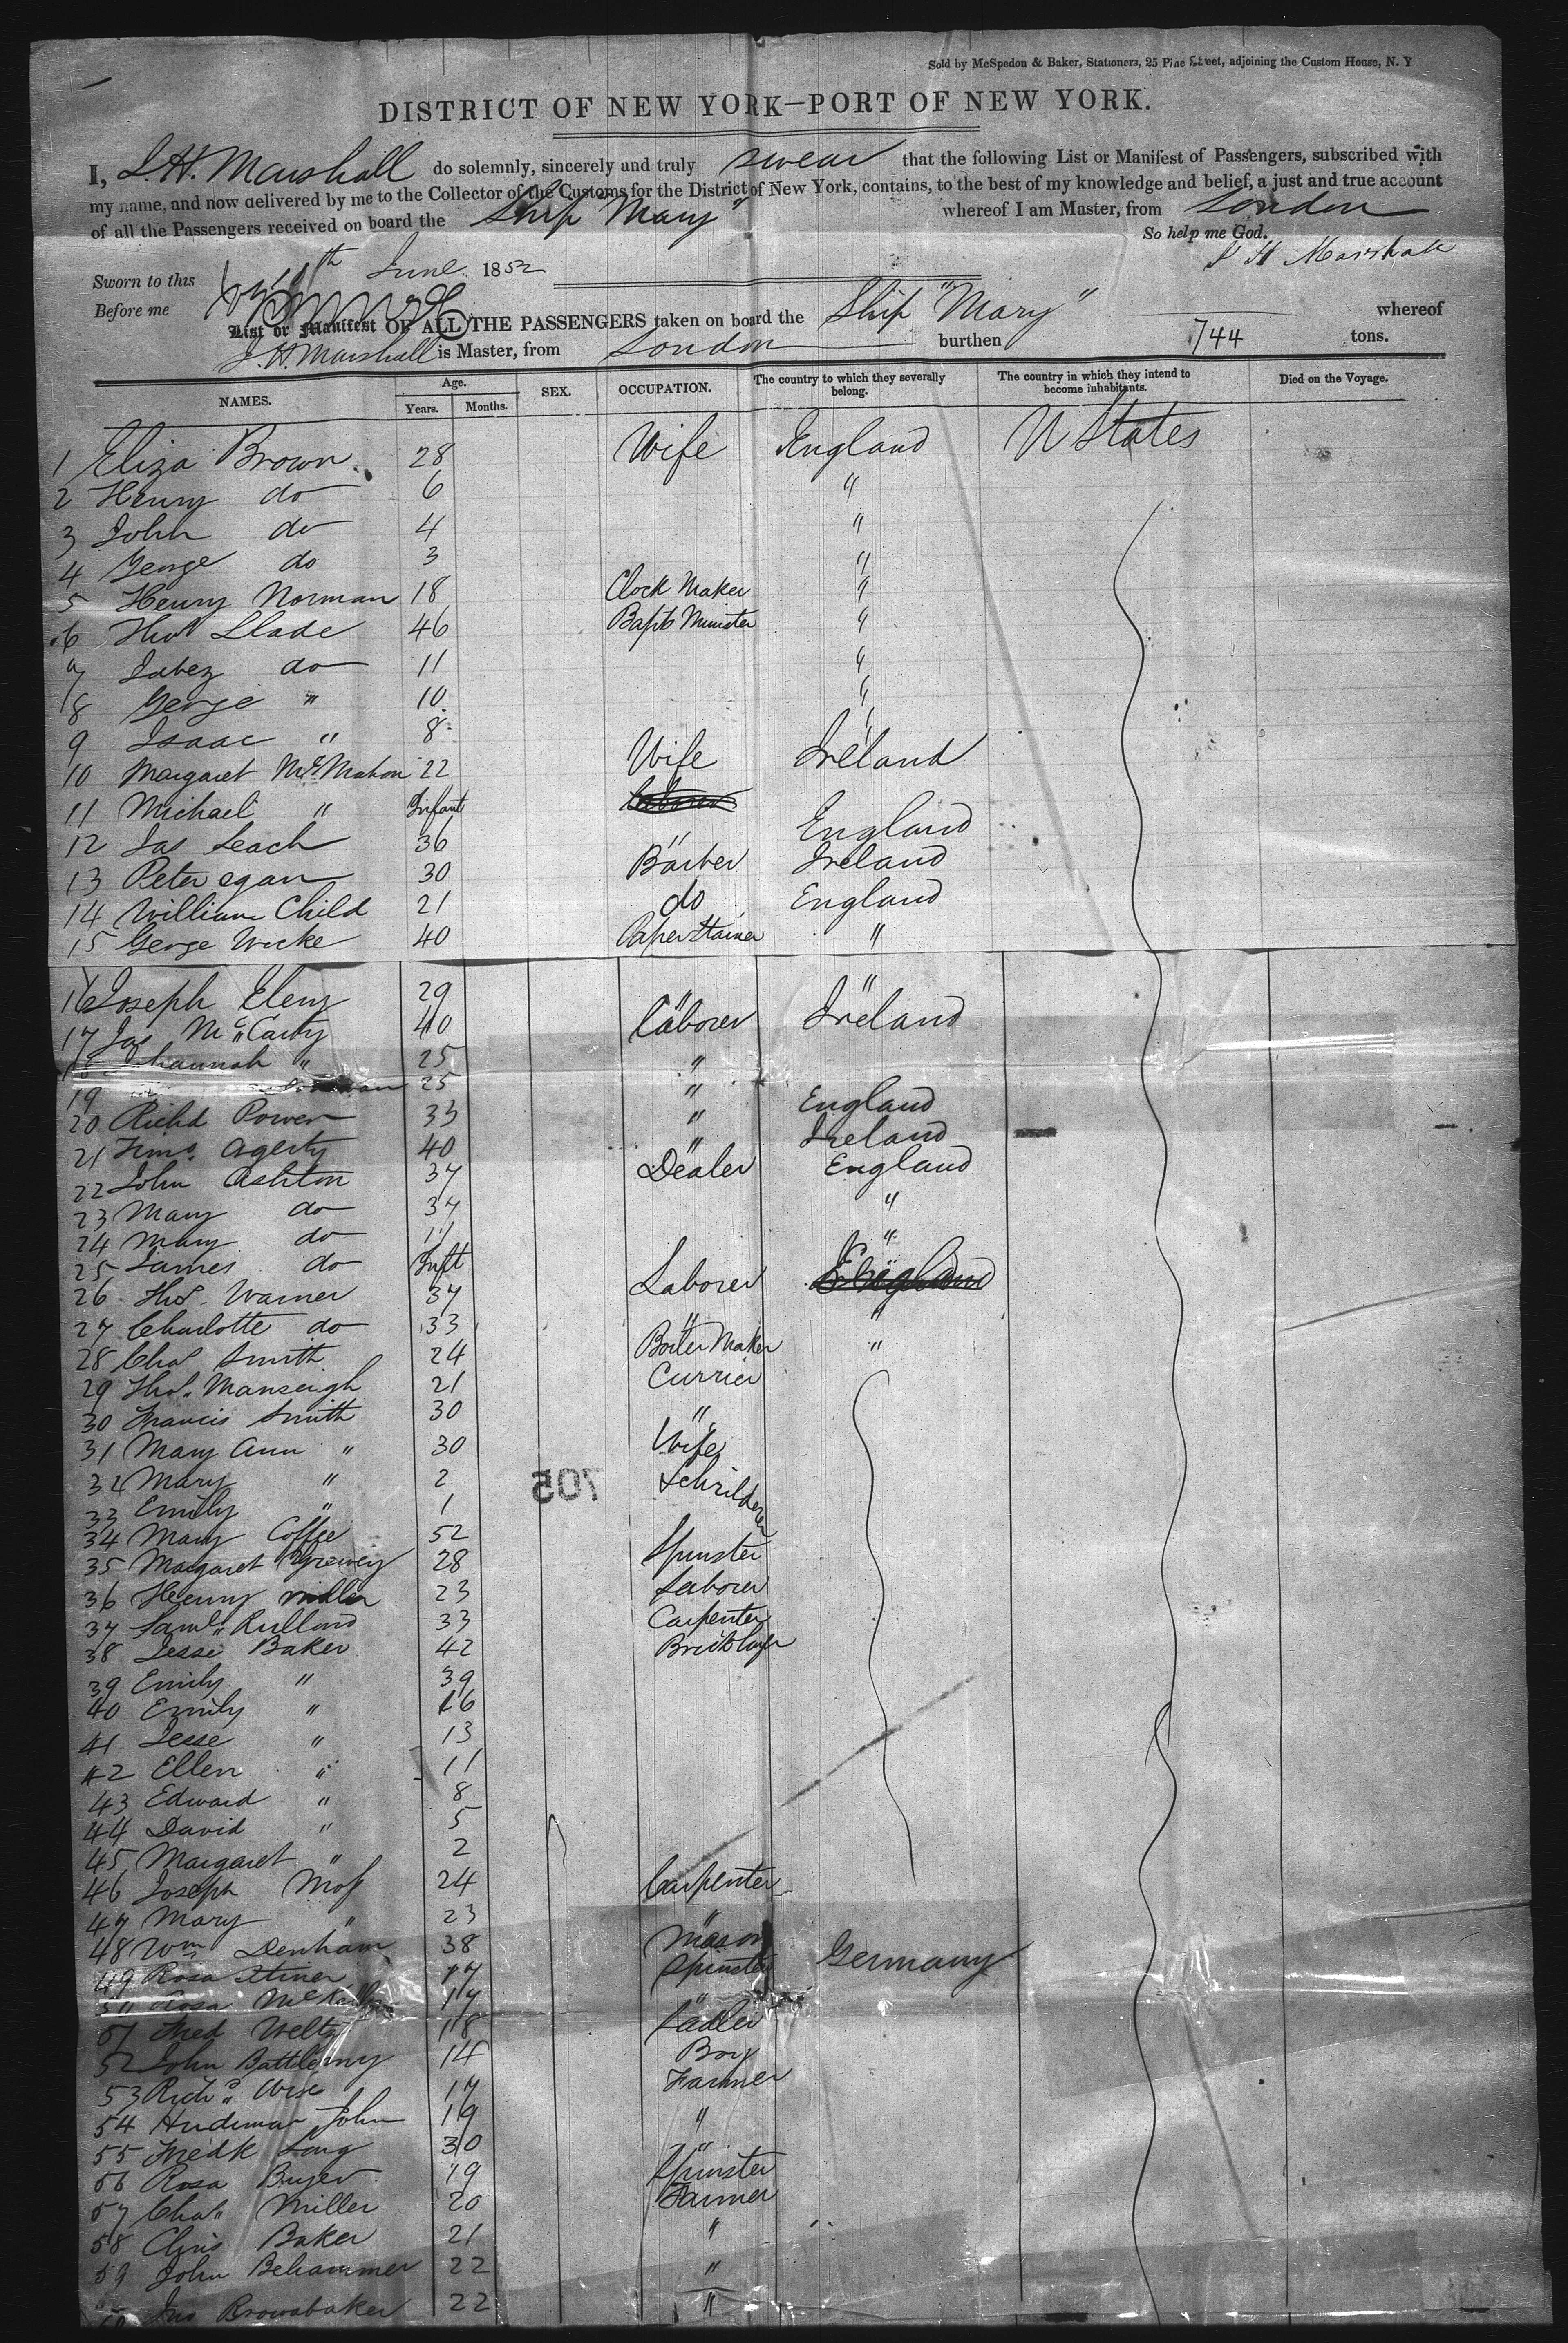 Sold by McSpedon & Baker, Stationers, 25 Pine Street, adjoining the Custom House, N. Y
DISTRICT OF NEW YORK—PORT OF NEW YORK.
I, J. H. Marshall do solemnly, sincerely and truly swear that the following List or Manifest of Passengers, subscribed with
my name, and now delivered by me to the Collector of the Customs for the District of New York, contains, to the best of my knowledge and belief, a just and true account
of all the Passengers received on board the Ship "Mary" whereof I am Master, from London
So help me God.
Sworn to this th June 1852 J H Marshall
Before me
List or Manifest OF ALL THE PASSENGERS taken on board the Ship "Mary" whereof
J. H. Marshall is Master, from London burthen 744 tons.
NAMES. Age. Years. Months. SEX. OCCUPATION. The country to which they severally belong. The country in which they intend to become inhabitants. Died on the Voyage.
1 Eliza Brown 28 Wife England U States
2 Henry do 6 "
3 John do 4 "
4 George do 3 "
5 Henry Norman 18 Clock Maker "
6 Thos Slade 46 Bapts Minister "
7 Jabez do 11 "
8 George " 10 "
9 Isaac " 8 "
10 Margaret McMahon 22 Wife Ireland
11 Michael " Infant
12 Jas Leach 36 " England
13 Peter egan 30 Barber Ireland
14 William Child 21 do England
15 George Wicke 40 Paper Stainer "
16 Joseph Eleny 29 " "
17 Jas McCarty 40 Laborer Ireland
18 Johannah " 25 "
19 25 "
20 Richd Power 33 " England
21 Timo. Agerty 40 " Ireland
22 John Ashton 37 Dealer England
23 Mary do 37 "
24 Mary do 11 "
25 James do Inft "
26 Thos. Warner 37 Laborer England
27 Charlotte do 33 " "
28 Chas Smith 24 Boiler Maker "
29 Thos. Manseigh 21 Currier
30 Francis Smith 30 "
31 Mary Ann " 30 Wife
32 Mary " 2
33 Emily " 1
34 Mary Coffee 52
35 Margaret 28 Spinster
36 Henry Miller 23 Laborer
37 Saml. Rulland 33 Carpenter
38 Jesse Baker 42 Bricklayer
39 Emily " 39
40 Emily " 16
41 Jesse " 13
42 Ellen " 11
43 Edward " 8
44 David " 5
45 Margaret " 2
46 Joseph Moss 24 Carpenter
47 Mary " 23 "
48 Wm Denham 38 Mason
49 Rosa Stiner 17 Spinster Germany
50 Rosa 17 "
51 Fred Weltz 18 Sadler
52 John Battlemy 14 Boy
53 Richd Wise 17 Farmer
54 Hudimar John 19 "
55 Fredk Long 30 "
56 Rosa Buyer 19 Spinster
57 Chas Miller 20 Farmer
58 Chris Baker 21 "
59 John Behammer 22 "
60 Jno Browabaker 22 "
705